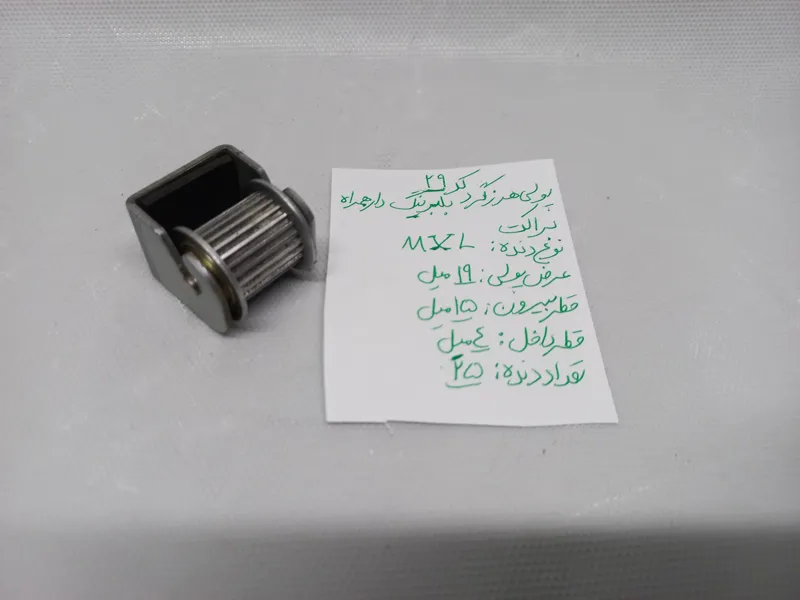 کد ۲۹
پولی هرزگرد بلبرینگ دار همراه
براکت
نوع دنده: MXL
عرض پولی: ۱۹ میل
قطر بیرون: ۱۵ میل
قطر داخل: ٤ میل
تعداد دنده: ۲۵